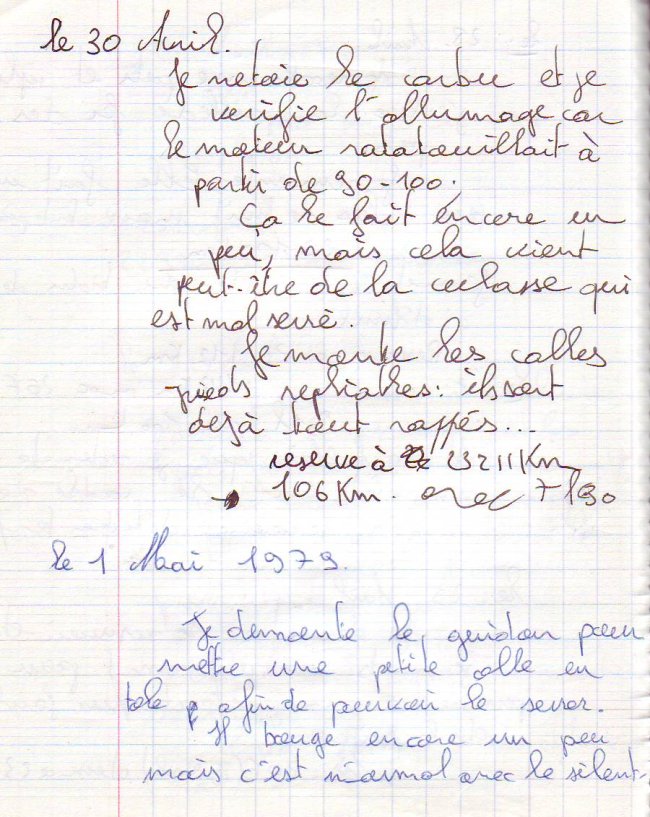 le 30 Avril.
Je netoie le carbu et je
verifie l'allumage car
le moteur ratatouillait à
partir de 90-100.
Ça le fait encore un
peu, mais cela vient
peut-être de la culasse qui
est mal serré.
Je monte les calles
pieds repliables: ils sont
dejà tout rappés...
reserve à 23211 Km
106 Km. avec 7 l 90
le 1 Mai 1979.
Je demonte le guidon pour
mettre une petite calle en
tole afin de pouvoir le serrer.
Il bouge encore un peu
mais c'est normal avec le silent-